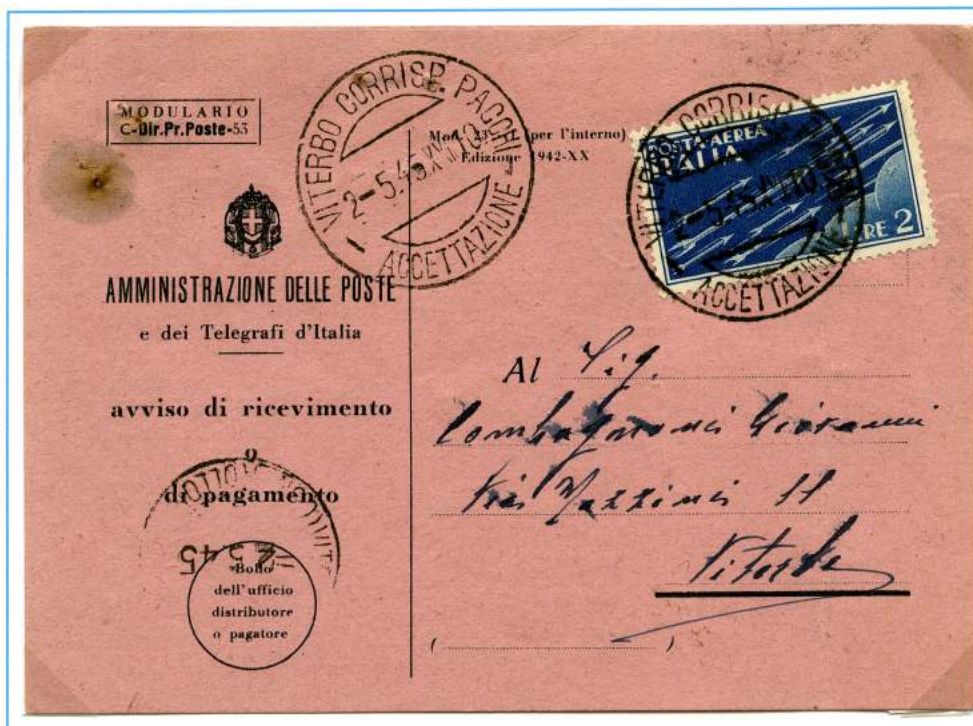 MODULARIO
C-Dir.Pr.Poste-53
VITERBO CORRISP. PACCHI
2-5.45.XXIII.10
ACCETTAZIONE
(per l'interno)
Edizione 1942-XX
POSTA AEREA
ITALIA
LIRE 2
2-5.45
ACCETTAZIONE
AMMINISTRAZIONE DELLE POSTE
e dei Telegrafi d'Italia
avviso di ricevimento
o
di pagamento
2.5.45
Bollo
dell'ufficio
distributore
o pagatore
Al Sig.
Giovanni
Via Mazzini 11
Viterbo